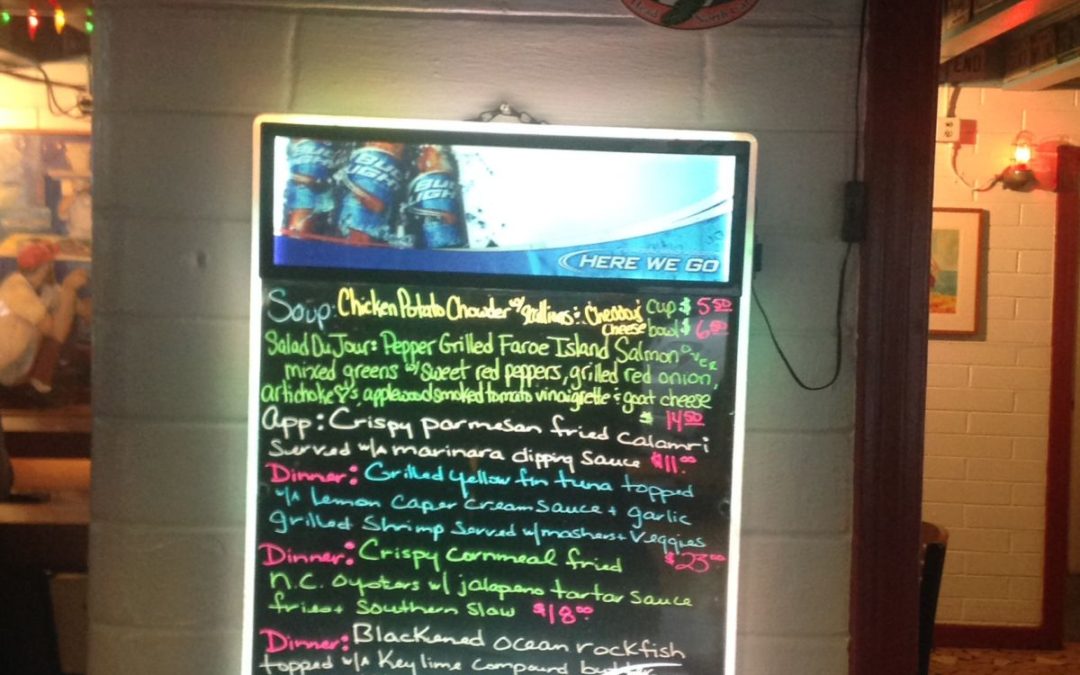 BUD LIGHT
BUD LIGHT
HERE WE GO
Soup: Chicken Potato Chowder w/ scallions & cheddar cup $ 5.50
cheese bowl $ 6.50
Salad Du Jour: Pepper Grilled Faroe Island Salmon over
mixed greens w/ sweet red peppers, grilled red onion,
artichoke ♡'s, applewood smoked tomato vinaigrette & goat cheese
$ 14.50
App: Crispy parmesan fried calamri
Served w/A marinara dipping sauce $11.00
Dinner: Grilled yellow fin tuna topped
w/A Lemon Caper Cream Sauce + garlic
grilled Shrimp Served w/ mashers + Veggies
Dinner: Crispy cornmeal fried $23.00
N.C. Oysters w/ jalapeno tartar sauce
fries + Southern Slaw $18.00
Dinner: Blackened ocean rockfish
topped w/A Key lime compound butter